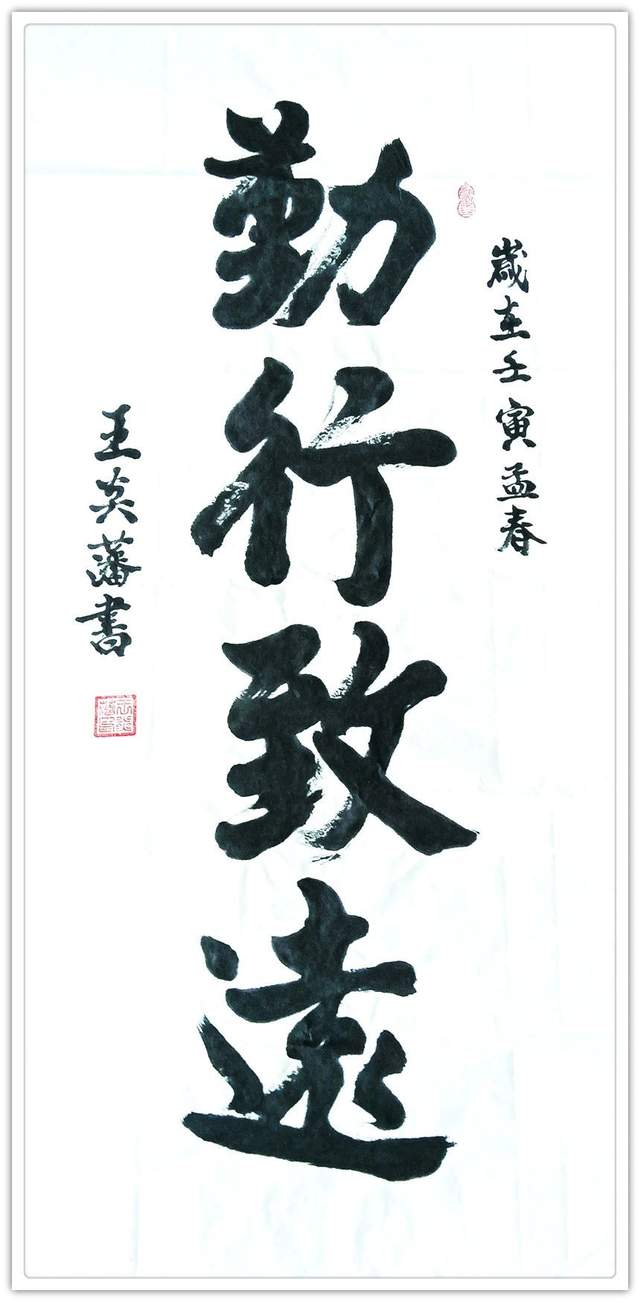 歲在壬寅孟春
勤行致遠
王炎藩書